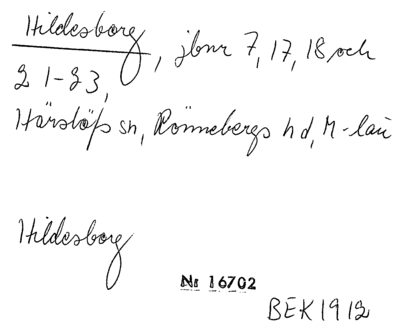 Hildesborg, jbnr 7, 17, 18 och
21-23,
Härslöfs sn, Rönnebergs hd, M-län
Hildesborg
Nr 16702
BEK 1912